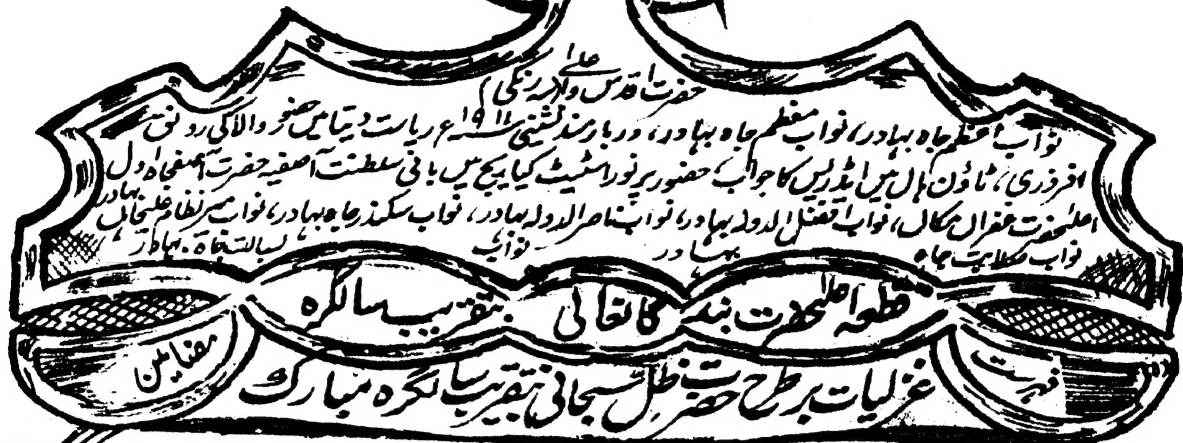 حضرت اقدس و اعلیٰ (سہ رنگی)
نواب اعظم جاہ بہادر، نواب معظم جاہ بہادر، دربار مسند نشینی سنہ ۱۹۱۱ء ریاست دنیا میں حضور والا کی رونق
افروزی، ٹاؤن ہال میں ایڈریس کا جواب، حضور پر نور اسٹیٹ کیا ریج میں بانی سلطنت آصفیہ حضرت آصفجاہ اول
اعلحضرت غفران مکان، نواب افضل الدولہ بہادر، نواب ناصر الدولہ بہادر، نواب سکندر جاہ بہادر، نواب میر نظام علیخاں بہادر
نواب صلابت جاہ بہادر نواب بسالت جاہ بہادر
قطعہ اعلحضرت بندگانعالی بتقریب سالگرہ
فہرست غزلیات بر طرح حضرت ظل سبحانی بتقریب سالگرہ مبارک مضامین